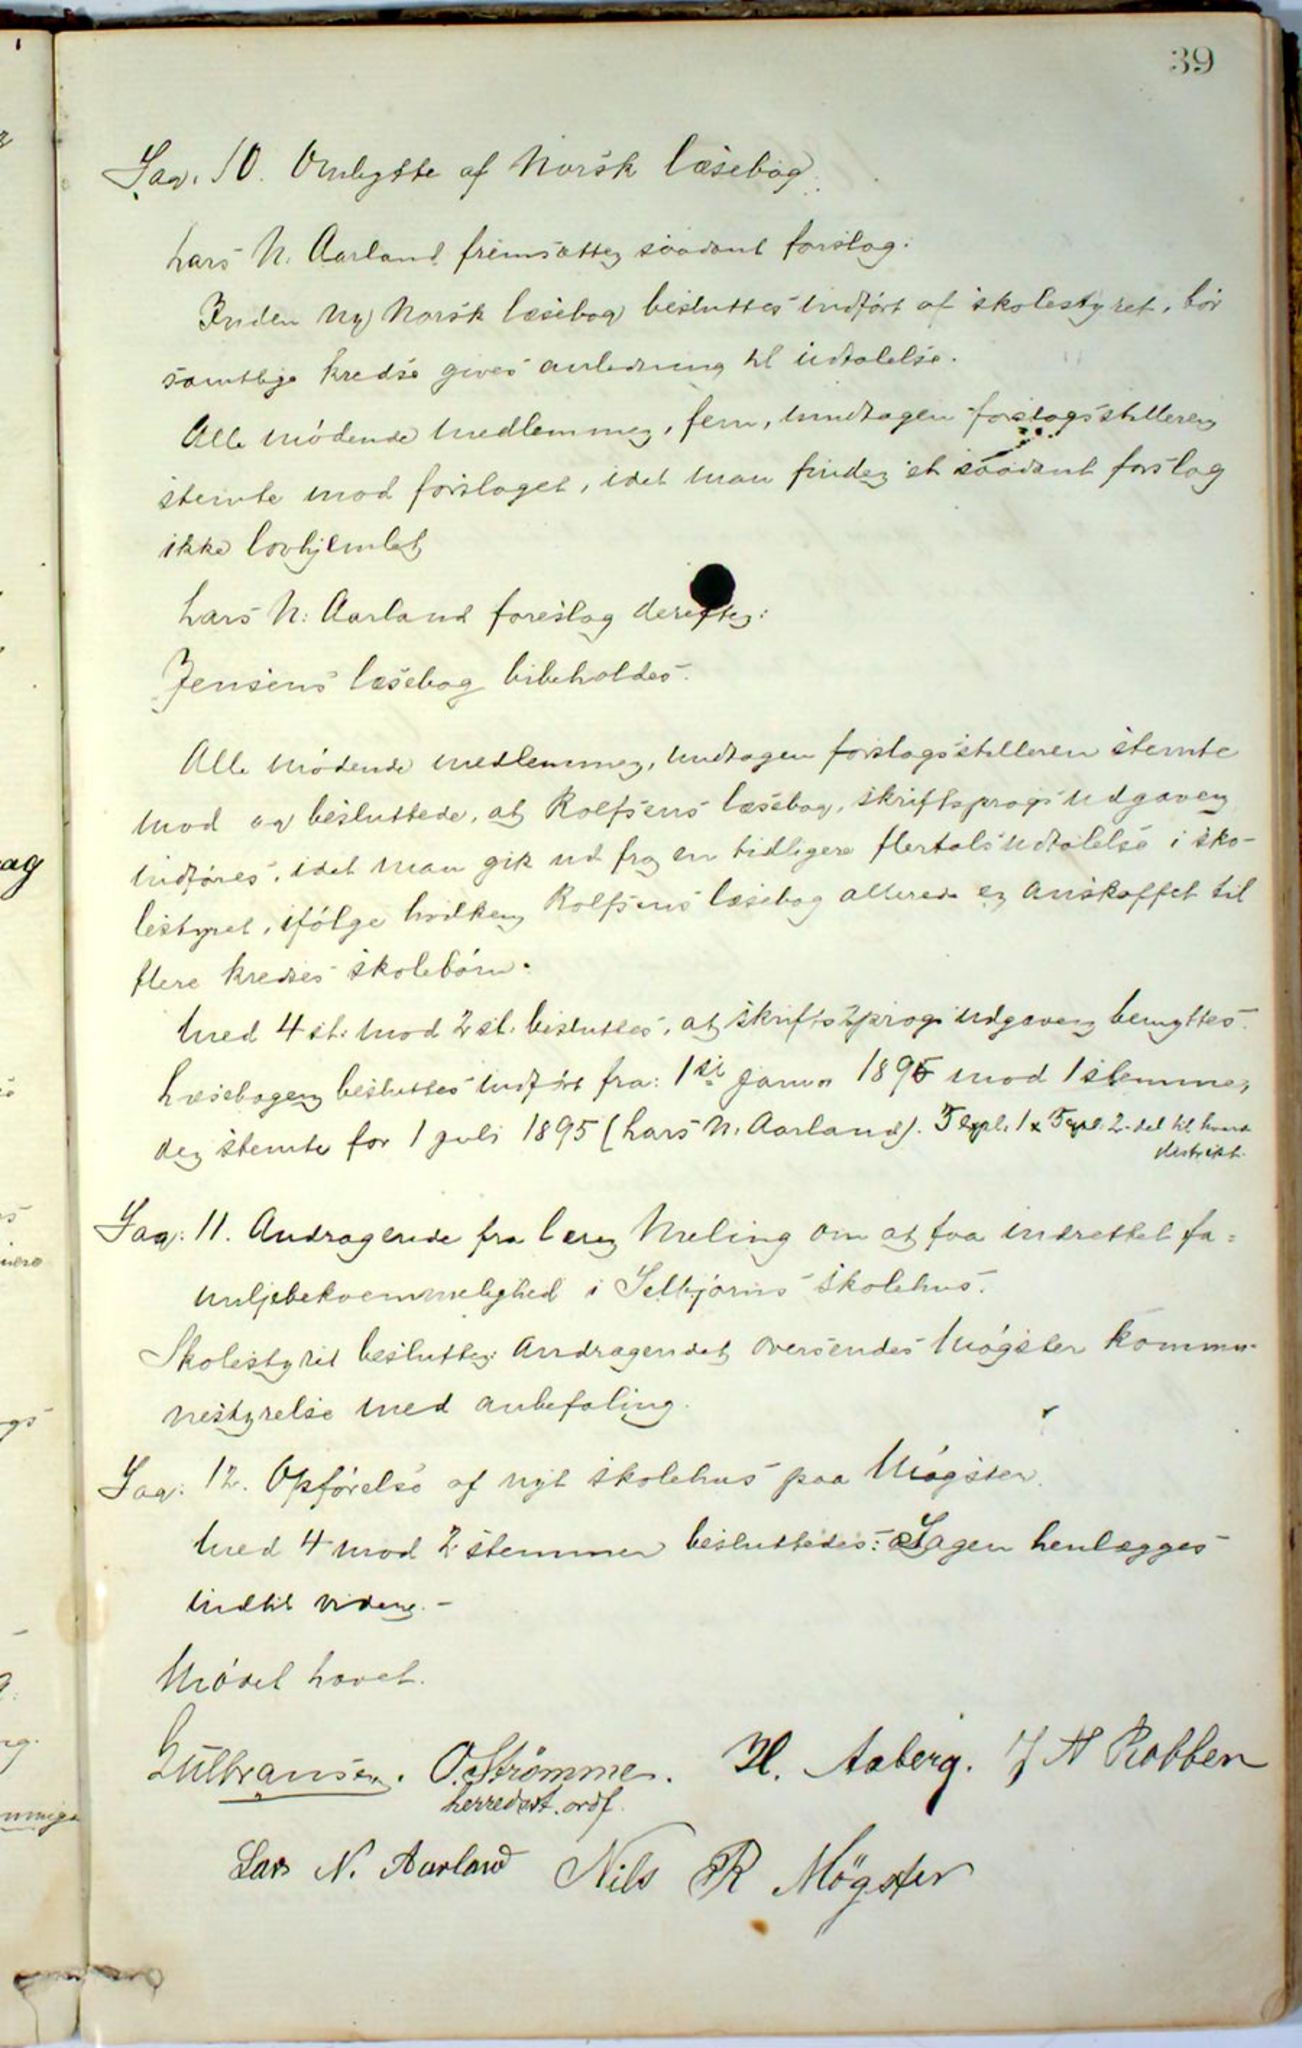 39
Sag. 10. Ombytte af Norsk læsebog.
Lars N. Aarland fremsatte saadant forslag:
Inden ny Norsk læsebog besluttes indført af skolestyret, bør
samtlige kredse gives anledning til udtalelse.
Alle mødende medlemmer, fem, undtagen forslagsstilleren
stemte mod forslaget, idet man finder et saadant forslag
ikke lovhjemlet
Lars N. Aarland foreslog derefter:
Jensens læsebog bibeholdes.
Alle mødende medlemmer, undtagen forslagsstilleren stemte
mod og besluttede, at Rolfsens læsebog, skriftsprogsudgaven
indføres, idet man gik ud fra en tidligere flertalsudtalelse i sko-
lestyret, ifølge hvilken Rolfsens læsebog allerede er anskaffet til
flere kredses skolebørn.
Med 4 st. mod 2 st. besluttes, at skriftsprogsudgaven benyttes.
Læsebogen besluttes indført fra: 1ste januar 1896 mod 1 stemme,
der stemte for 1 juli 1895 (Lars N. Aarland). 5 expl. 1 x 5 expl. 2. del til hvert
distrikt.
Sag: 11. Andragende fra lærer Meling om at faa indrettet fa=
miljebekvemmelighed i Selbjørns skolehus.
Skolestyret beslutter: Andragendet oversendes Møgster kommu-
nestyrelse med anbefaling.
Sag: 12. Opførelse af nyt skolehus paa Møgster.
Med 4 mod 2 stemmer besluttedes: Sagen henlægges
indtil videre. -
Mødet hævet.
Gulbransen. O. Strømme. H. Aaberg. J N Robben
herredsst. ordf.
Lars N. Aarland Nils R Møgster